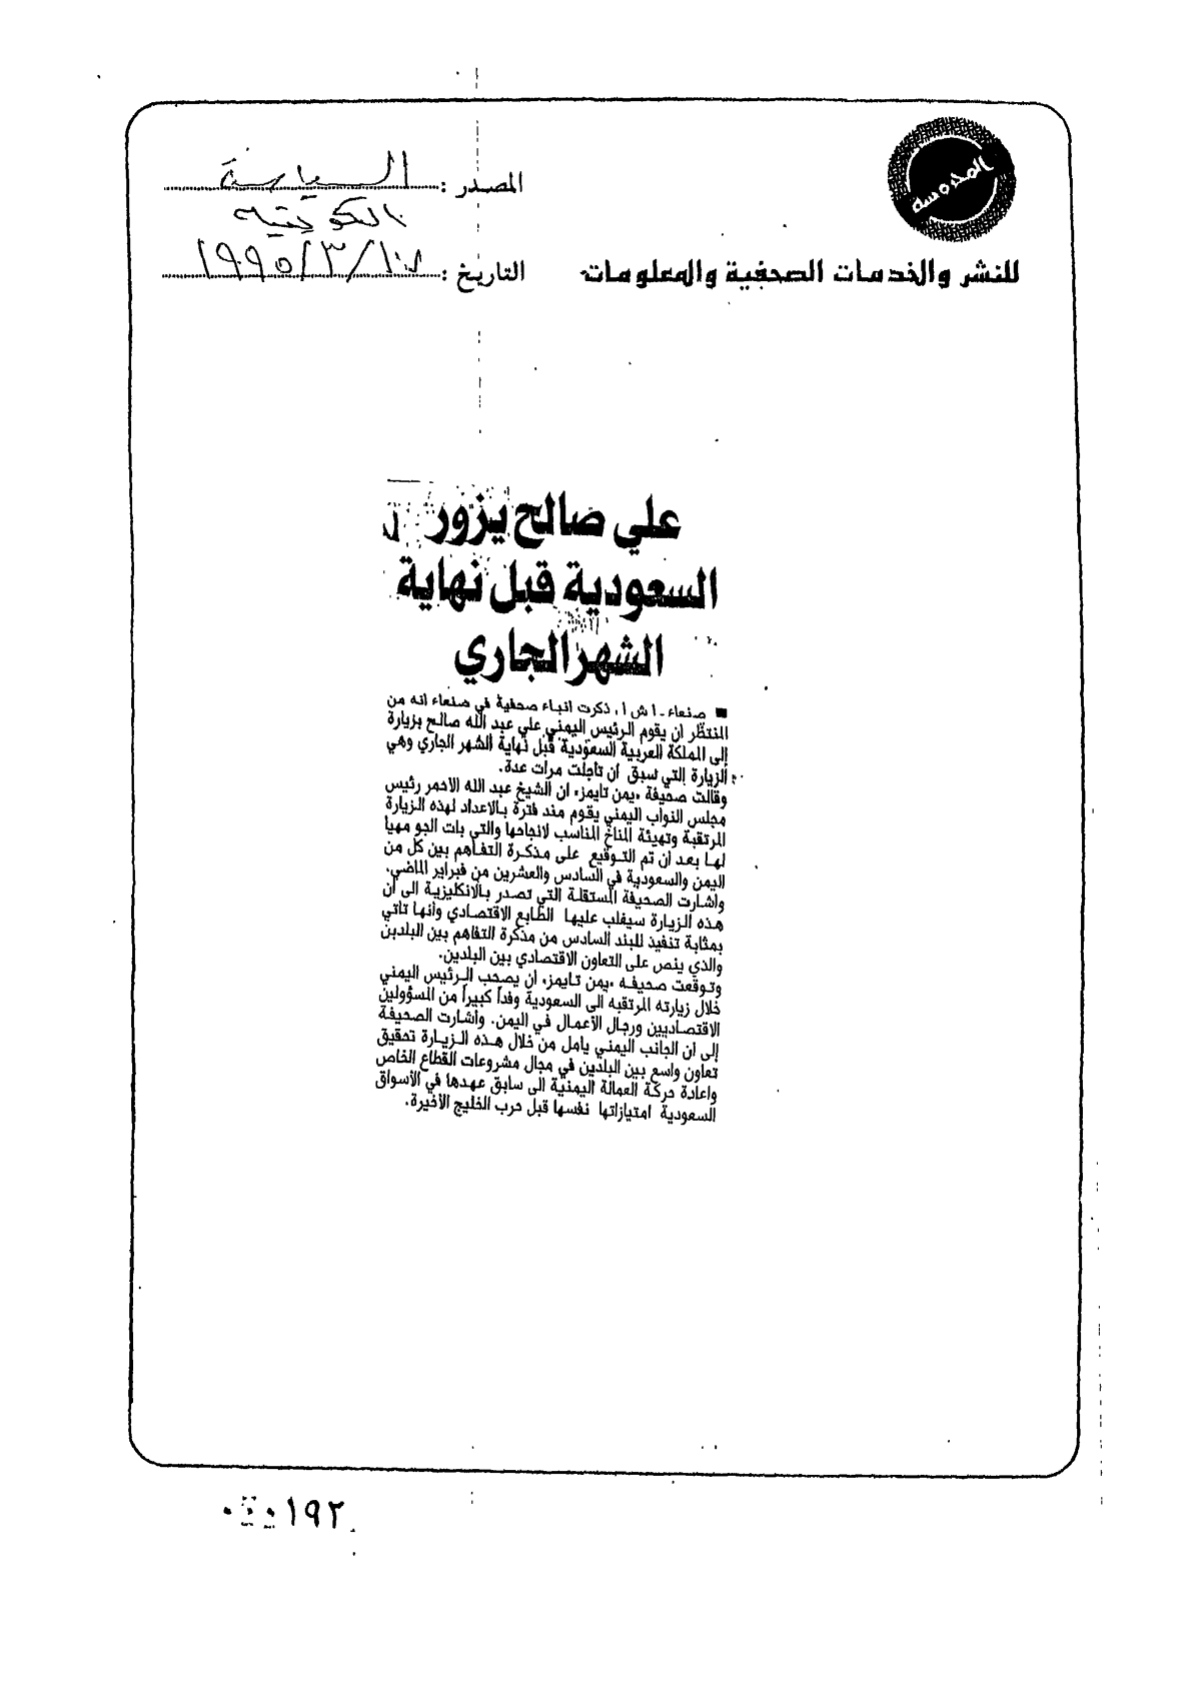 المحروسة
للنشر والخدمات الصحفية والمعلومات
المصدر : السياسة
الكويتية
التاريخ : /٣/١٩٩٥
علي صالح يزور
السعودية قبل نهاية
الشهر الجاري
■ صنعاء - ا ش ا، ذكرت انباء صحفية في صنعاء انه من
المنتظر ان يقوم الرئيس اليمني علي عبد الله صالح بزيارة
إلى المملكة العربية السعودية قبل نهاية الشهر الجاري وهي
الزيارة التي سبق ان تأجلت مرات عدة.
وقالت صحيفة «يمن تايمز» ان الشيخ عبد الله الاحمر رئيس
مجلس النواب اليمني يقوم منذ فترة بالاعداد لهذه الزيارة
المرتقبة وتهيئة المناخ المناسب لانجاحها والتي بات الجو مهيا
لها بعد ان تم التوقيع على مذكرة التفاهم بين كل من
اليمن والسعودية في السادس والعشرين من فبراير الماضي.
واشارت الصحيفة المستقلة التي تصدر بالانكليزية الى ان
هذه الزيارة سيغلب عليها الطابع الاقتصادي وانها تاتي
بمثابة تنفيذ للبند السادس من مذكرة التفاهم بين البلدين
والذي ينص على التعاون الاقتصادي بين البلدين.
وتوقعت صحيفه «يمن تايمز» ان يصحب الرئيس اليمني
خلال زيارته المرتقبه الى السعودية وفداً كبيراً من المسؤولين
الاقتصاديين ورجال الأعمال في اليمن. واشارت الصحيفة
إلى ان الجانب اليمني يامل من خلال هذه الزيارة تحقيق
تعاون واسع بين البلدين في مجال مشروعات القطاع الخاص
واعادة حركة العمالة اليمنية الى سابق عهدها في الأسواق
السعودية امتيازاتها نفسها قبل حرب الخليج الأخيرة.
١٩٢